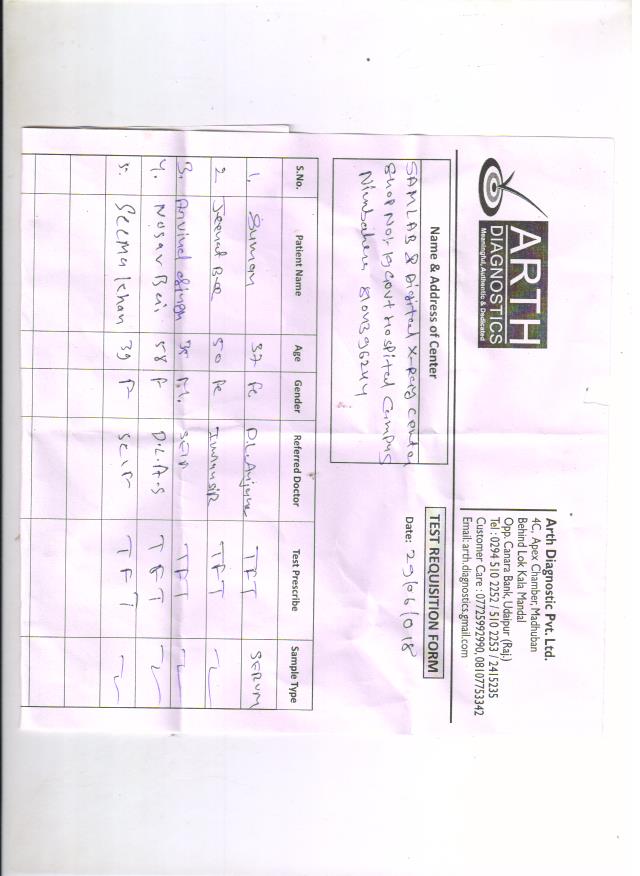 ARTH
DIAGNOSTICS
Meaningful, Authentic & Dedicated
Arth Diagnostic Pvt. Ltd.
4C, Apex Chamber, Madhuban
Behind Lok Kala Mandal
Opp. Canara Bank, Udaipur (Raj.)
Tel : 0294 510 2252 / 510 2253 / 2415235
Customer Care : 07725992990, 08107753342
Email: arth.diagnostics.gmail.com
Name & Address of Center
TEST REQUISITION FORM
SAMLAB & Digital X-Ray Center
Shop No. 13 Govt Hospital Campus
Nimbahera
Date: 29/06/018
S.No. Patient Name Age Gender Referred Doctor Test Prescribe Sample Type
1. Suman 37 Fe D.L. TFT SERUM
2 50 Fe TFT
3. 35 M. SELF TFT
4. 58 F TFT
5. Seema Khan 39 F SELF TFT